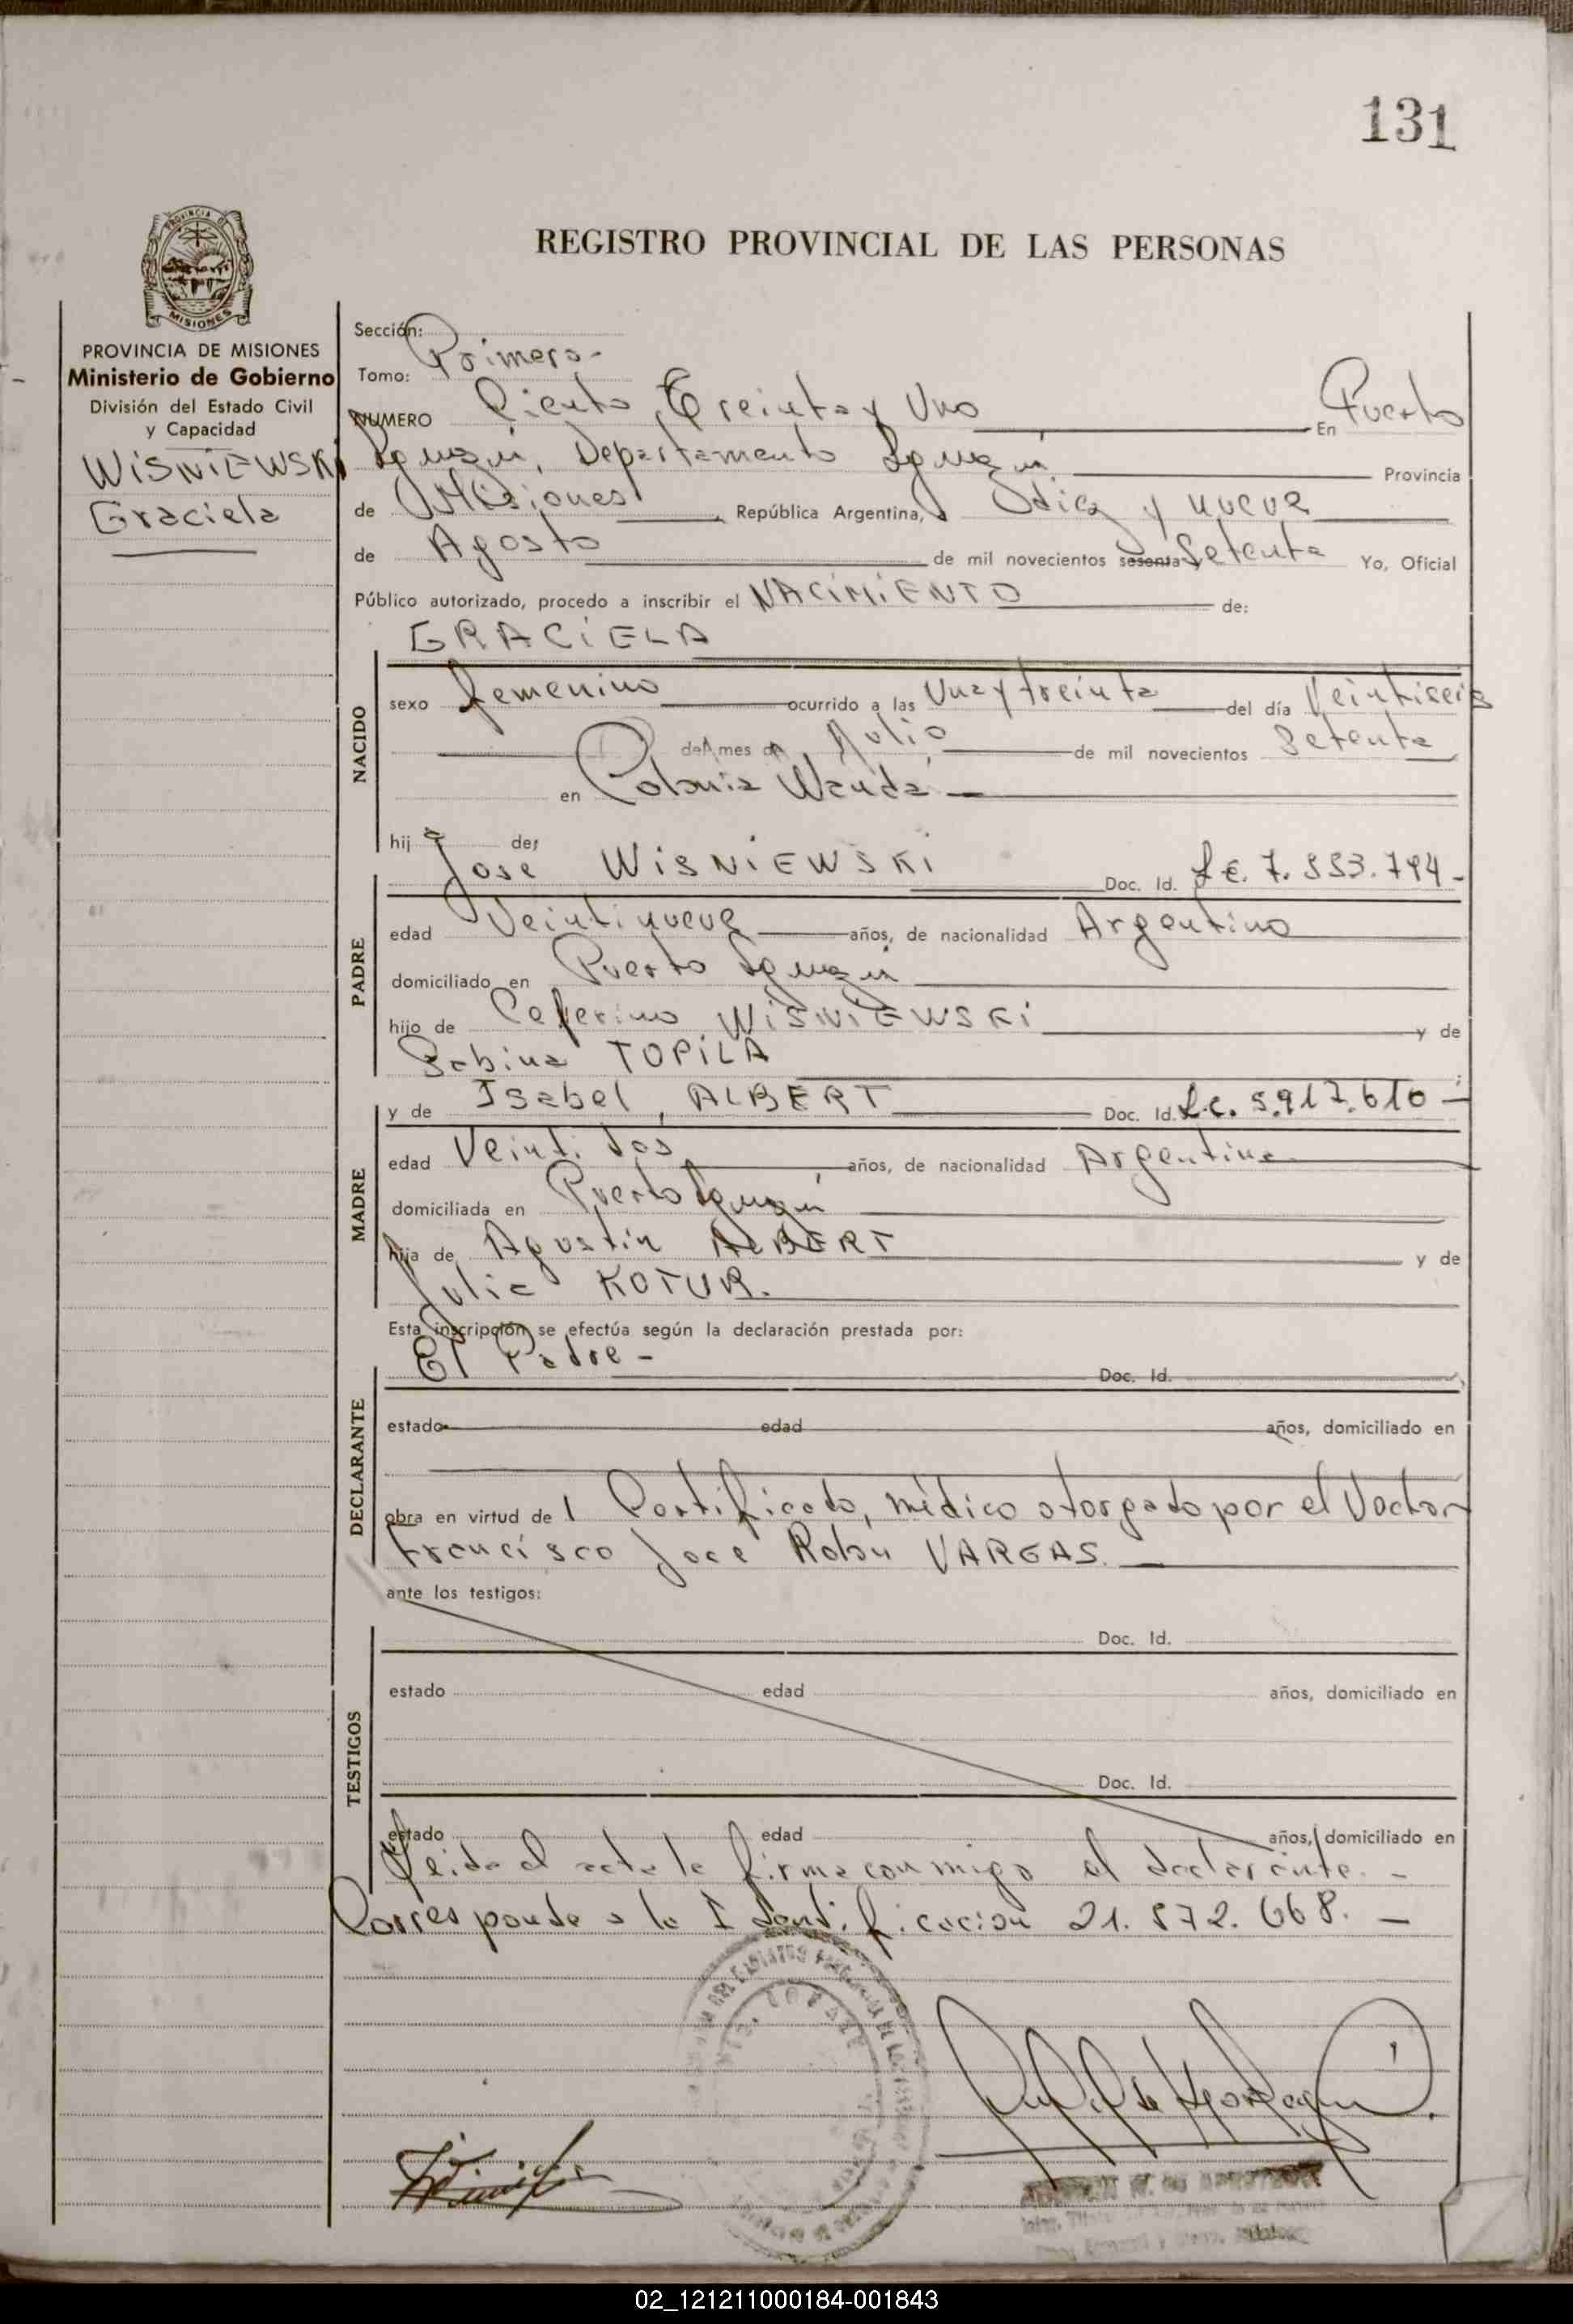 131
REGISTRO PROVINCIAL DE LAS PERSONAS
PROVINCIA DE MISIONES
MISIONES
PROVINCIA DE MISIONES
Ministerio de Gobierno
División del Estado Civil
y Capacidad
WiSNiEWSKi
Graciela
Sección:
Tomo: Primero-
NUMERO Ciento Treinta y Uno En Puerto
Iguazú, Departamento Iguazú Provincia
de Misiones, República Argentina, diez y nueve
de Agosto de mil novecientos sesenta Setenta Yo, Oficial
Público autorizado, procedo a inscribir el NACiMiENTO de:
GRACiELA
NACIDO
sexo femenino ocurrido a las Una y treinta del día Veintiseis
del mes de Julio de mil novecientos Setenta
en Colonia Wanda
hija de:
José WiSNiEWSKi Doc. Id. L.E. 7.553.794-
PADRE
edad Veintinueve años, de nacionalidad Argentino
domiciliado en Puerto Iguazú
hijo de Ceferino WiSNiEWSKi y de
Sabina TOPiLA
y de Isabel, ALBERT Doc. Id. L.C. 5.917.610-
MADRE
edad Veintidos años, de nacionalidad Argentina
domiciliada en Puerto Iguazú
hija de Agustin ALBERT y de
Julia KOTUR.
Esta inscripción se efectúa según la declaración prestada por:
El Padre - Doc. Id.
DECLARANTE
estado edad años, domiciliado en
obra en virtud de 1 Certificado, médico otorgado por el Doctor
Francisco José VARGAS.
ante los testigos:
Doc. Id.
TESTIGOS
estado edad años, domiciliado en
Doc. Id.
estado edad años, domiciliado en
Leida el acta la firma conmigo el declarante. -
Corresponde a la Identificación 21.872.668. -
02_121211000184-001843